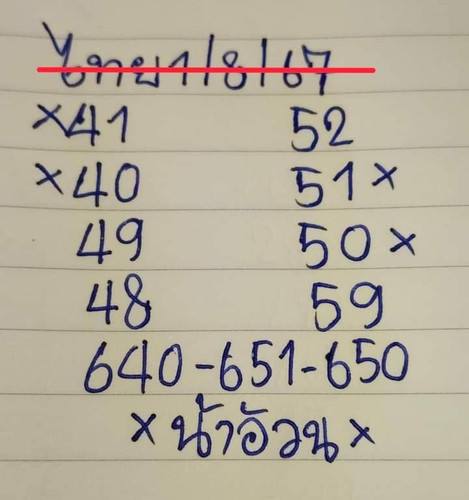 ไทย1/8/67
×41 52
×40 51×
49 50×
48 59
640-651-650
×น้าอ้วน×